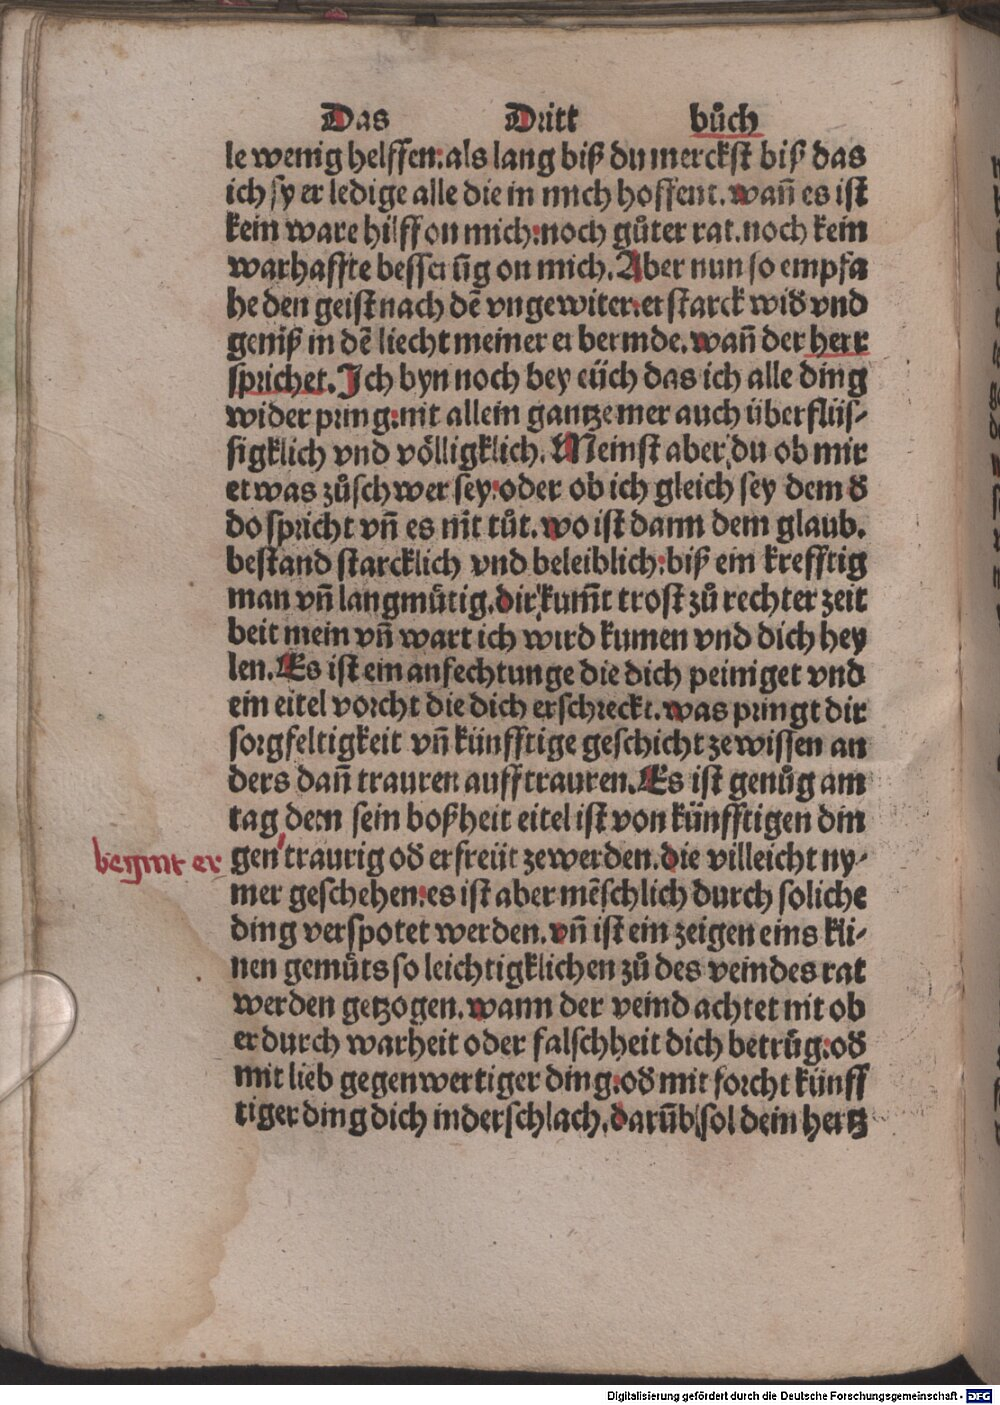 Das Dritt bůch
le wenig helffen: als lang biß du merckst biß das
ich sy er ledige alle die in mich hoffent. wañ es ist
kein ware hilff on mich: noch gůter rat. noch kein
warhaffte besser ũg on mich. Aber nun so empfa
he den geist nach dē vngewiter: er starck wid vnd
geniß in dē liecht meiner er bermde. wañ der herr
sprichet. Ich byn noch bey eüch das ich alle ding
wider pring: nit allein gantze mer auch überflüs-
sigklich vnd völligklich. Meinst aber du ob mir
etwas zůschwer sey: oder ob ich gleich sey dem d
do spricht vñ es nit tůt. wo ist dann dem glaub.
bestand starcklich vnd beleiblich: biß ein krefftig
man vñ langmůtig. dir kum̄t trost zů rechter zeit
beit mein vñ wart ich wird kumen vnd dich hey
len. Es ist ein anfechtunge die dich peiniget vnd
ein eitel vorcht die dich erschreckt. was pringt dir
sorgfeltigkeit vñ künfftige geschicht ze wissen an
ders dañ trauren auff trauren. Es ist genůg am
tag dem sein boßheit eitel ist von künfftigen din
gen traurig od erfreüt zewerden. die villeicht ny-
mer geschehen: es ist aber mēschlich durch soliche
ding verspotet werden. vñ ist ein zeigen eins kli-
nen gemůts so leichtigklichen zů des veindes rat
werden getzogen. wann der veind achtet nit ob
er durch warheit oder falschheit dich betrůg: od
mit lieb gegenwertiger ding: od mit forcht künff
tiger ding dich inderschlach. darũb sol dein hertz
Digitalisierung gefördert durch die Deutsche Forschungsgemeinschaft - DFG